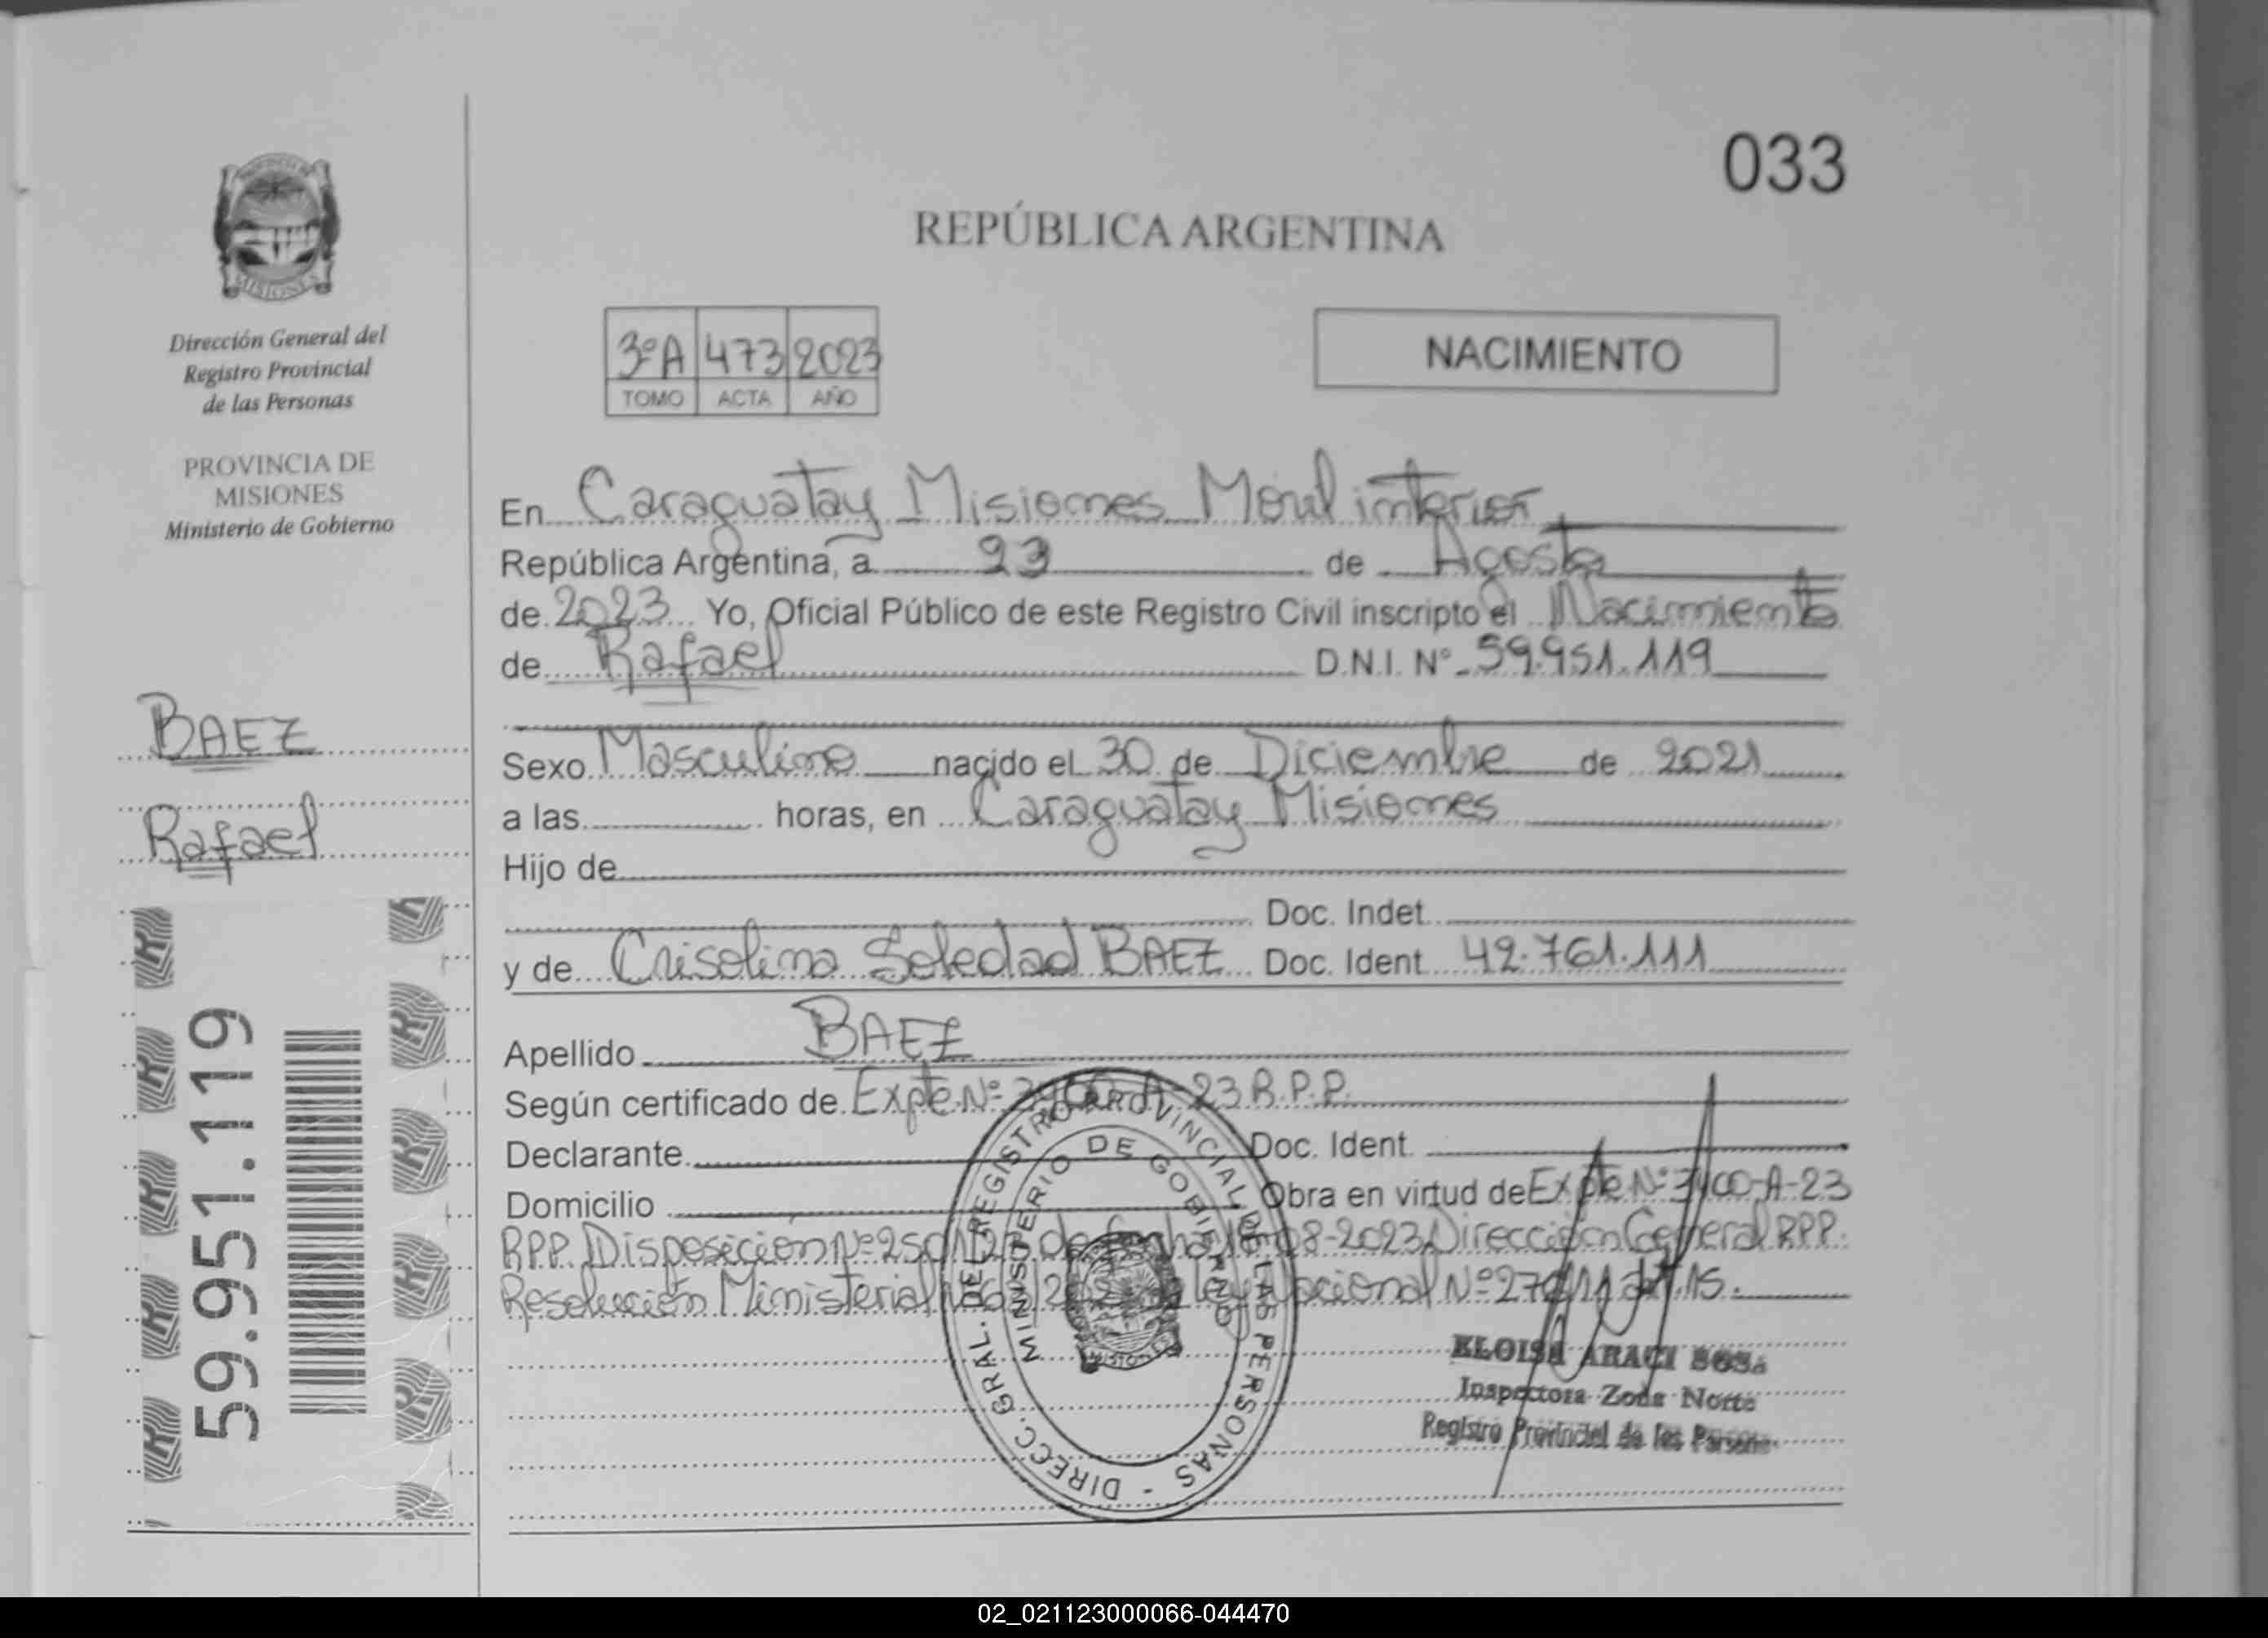 033
REPÚBLICA ARGENTINA
PROVINCIA DE
MISIONES
Dirección General del
Registro Provincial
de las Personas
PROVINCIA DE
MISIONES
Ministerio de Gobierno
3ºA 473 2023
TOMO ACTA AÑO
NACIMIENTO
En Caraguatay Misiones Movil interior
República Argentina, a 23 de Agosto
de 2023 Yo, Oficial Público de este Registro Civil inscripto el Nacimiento
de Rafael D.N.I. Nº 59.951.119
Sexo Masculino nacido el 30 de Diciembre de 2021
a las horas, en Caraguatay Misiones
Hijo de
Doc. Indet.
y de Crisolina Soledad BAEZ Doc. Ident 42.761.111
Apellido BAEZ
Según certificado de Expte Nº 3400-A-23 R.P.P.
Declarante Doc. Ident.
Domicilio Obra en virtud de Expte Nº 3400-A-23
RPP. Disposición Nº 08-2023 Dirección General RPP.
Resolución Ministerial Ley Nacional Nº 15.
BAEZ
Rafael
59.951.119
DIRECC. GRAL. DEL REGISTRO PROVINCIAL DE LAS PERSONAS -
MINISTERIO DE GOBIERNO
MISIONES
ELOISA ARACI SOSA
Inspectora Zona Norte
Registro Provincial de las Personas
02_021123000066-044470